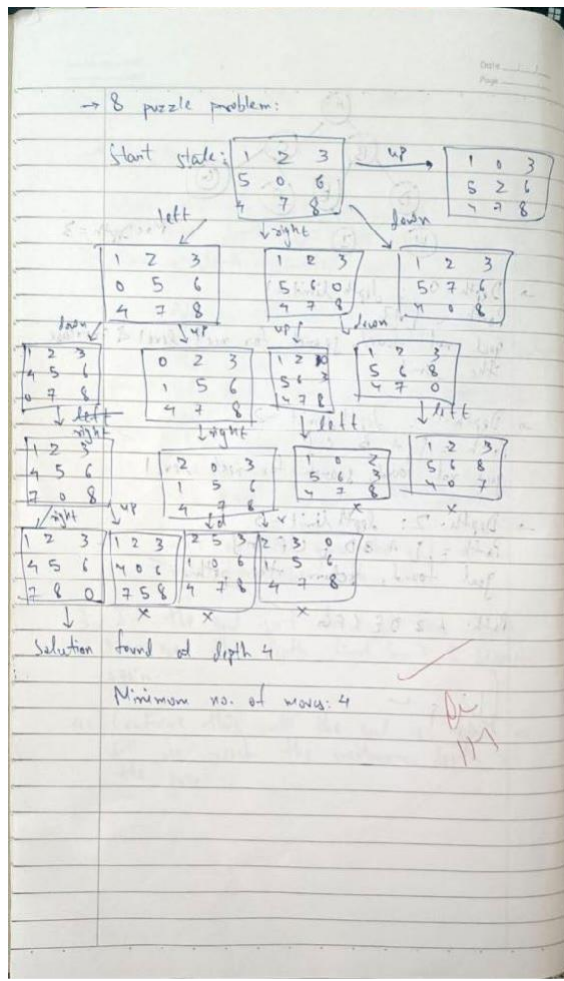 Date
Page
→ 8 puzzle problem:
Start state:
1 2 3
5 0 6
4 7 8
up
1 0 3
5 2 6
4 7 8
left
right
down
1 2 3
0 5 6
4 7 8
1 2 3
5 6 0
4 7 8
1 2 3
5 7 6
4 0 8
down
up
up
down
1 2 3
4 5 6
0 7 8
0 2 3
1 5 6
4 7 8
1 2 0
5 6 3
4 7 8
1 2 3
5 6 8
4 7 0
left
right
right
left
left
1 2 3
4 5 6
7 0 8
2 0 3
1 5 6
4 7 8
1 0 2
5 6 3
4 7 8
1 2 3
5 6 8
4 0 7
x
x
right
up
d
r
1 2 3
4 5 6
7 8 0
1 2 3
4 0 6
7 5 8
2 5 3
1 0 6
4 7 8
2 3 0
1 5 6
4 7 8
x
x
x
Solution found at depth 4
Minimum no. of moves: 4